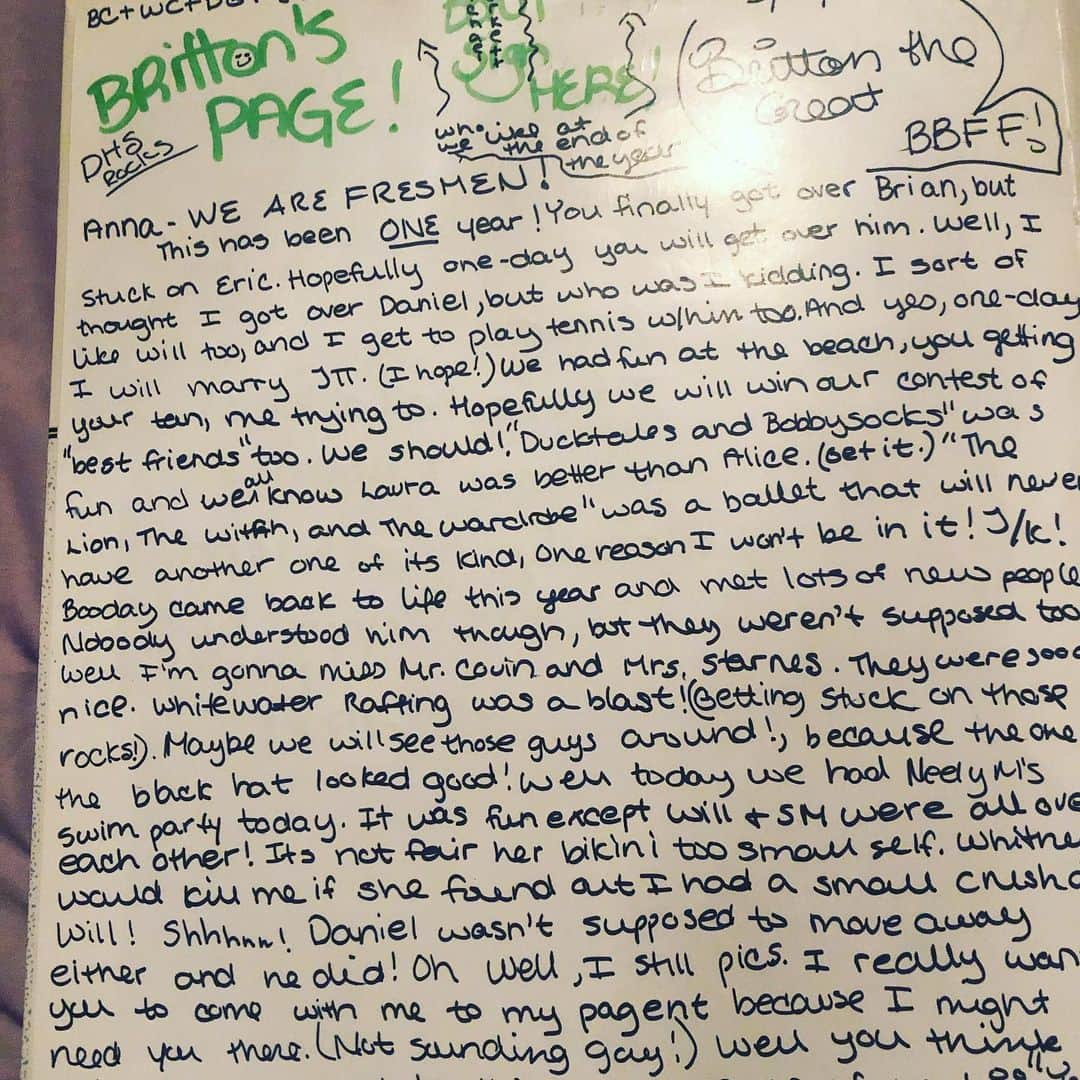 BC + WC + D
Britton's
PAGE!
DHS
ROCKS
Don't
Sign
HERE!
who we like at
the end of
the year
Britton the
Great
BBFF!
Anna - WE ARE FRESMEN!
This has been ONE year! You finally got over Brian, but
stuck on Eric. Hopefully one-day you will get over him. Well, I
thought I got over Daniel, but who was I kidding. I sort of
like will too, and I get to play tennis w/him too. And yes, one-day
I will marry JTT. (I hope!) We had fun at the beach, you getting
your tan, me trying to. Hopefully we will win our contest of
"best friends" too. We should! "Ducktales and Bobbysocks" was
fun and we all know Laura was better than Alice. (Get it.) "The
Lion, The witch, and The wardrobe" was a ballet that will never
have another one of its kind, one reason I won't be in it! J/K!
Booday came back to life this year and met lots of new people
Nobody understood him though, but they weren't supposed too
well I'm gonna miss Mr. Covin and Mrs. Starnes. They were sooo
nice. Whitewater Rafting was a blast! (Getting stuck on those
rocks!). Maybe we will see those guys around!, because the one
the black hat looked good! Well today we had Neely M's
swim party today. It was fun except Will + SM were all over
each other! Its not fair her bikini too small self. Whitne
would kill me if she found out I had a small crush o
Will! Shhhhh! Daniel wasn't supposed to move away
either and he did! Oh well, I still pics. I really wan
you to come with me to my pagent because I might
need you there. (Not sounding gay!) Well you think